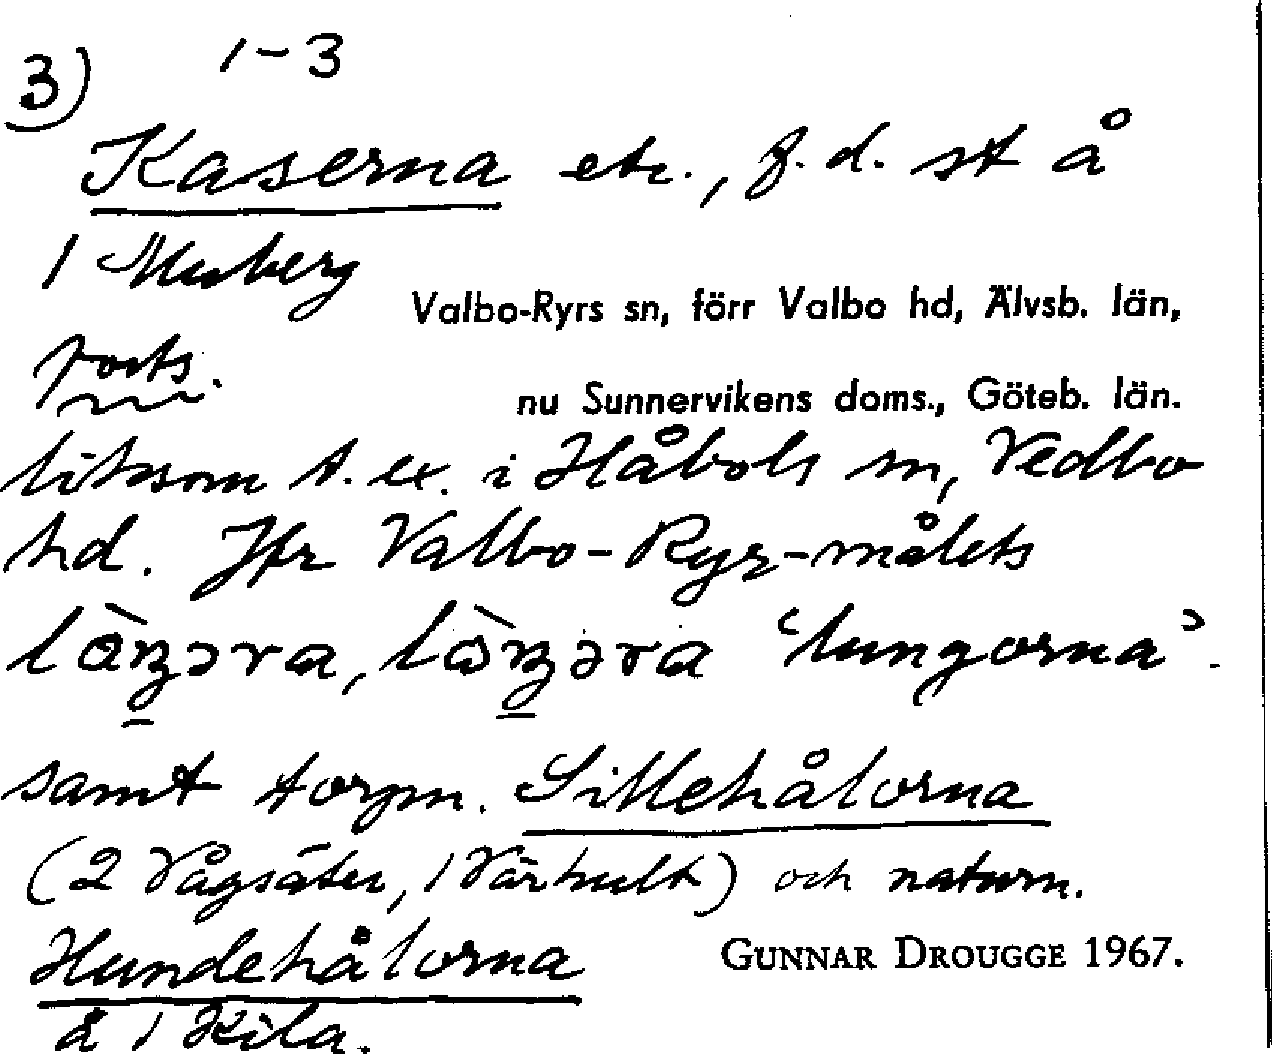 3) 1-3
Kaserna etc., f. d. st å
1 Musberg
Valbo-Ryrs sn, förr Valbo hd, Älvsb. län,
forts.
nu Sunnervikens doms., Göteb. län.
liksom t. ex. i Håbols sn, Vedbo
hd. Jfr Valbo-Ryr-målets
‘lungorna’.
samt torpn. Sillehålorna
(2 Vågsäter, 1 Värhult) och naturn.
Hundehålorna
GUNNAR DROUGGE 1967.
å 1 Kila.